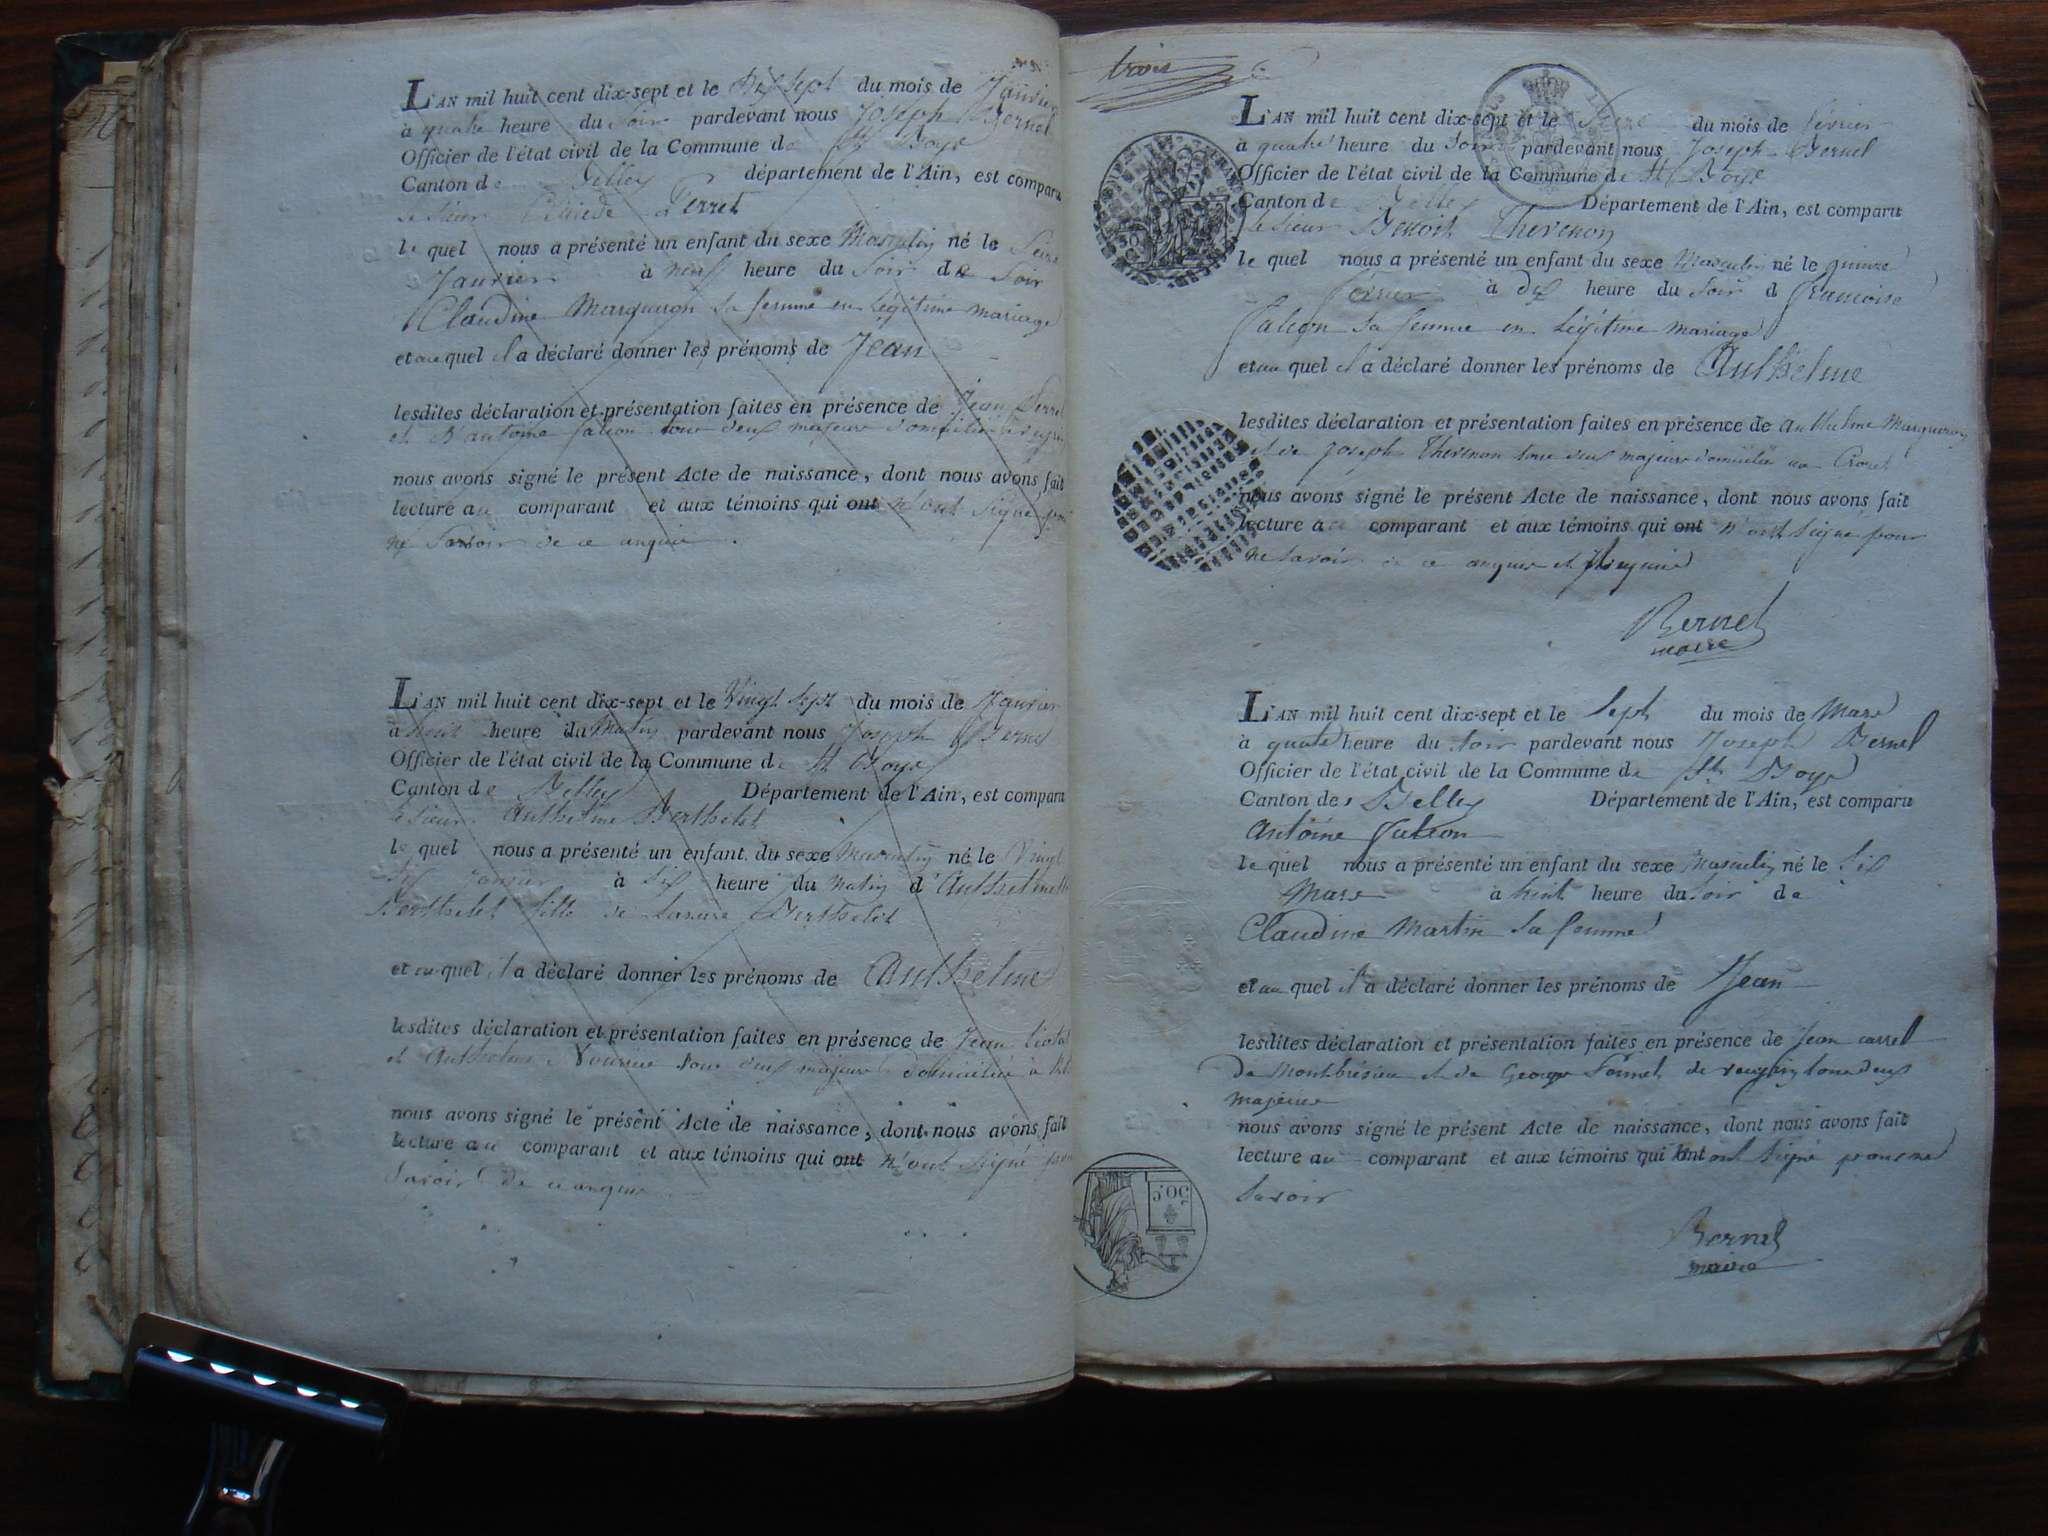 L'AN mil huit cent dix-sept et le Dix sept du mois de Janvier
à quatre heure du Soir pardevant nous Joseph Bernel
Officier de l'état civil de la Commune de St Boys
Canton de Belley département de l'Ain, est comparu
le sieur Perret
le quel nous a présenté un enfant du sexe Masculin né le Seize
Janvier à neuf heure du Soir de
Claudine Marqueron sa femme en Légitime mariage
et au quel il a déclaré donner les prénoms de Jean
lesdites déclaration et présentation faites en présence de Jean Perret
et d'antoine falcon tous deux majeurs
nous avons signé le présent Acte de naissance, dont nous avons fait
lecture au comparant et aux témoins qui ont n'ont signé pour
ne Savoir de ce enquis
L'AN mil huit cent dix-sept et le Vingt Sept du mois de Janvier
à huit heure du Matin pardevant nous Joseph Bernel
Officier de l'état civil de la Commune de St Boys
Canton de Belley Département de l'Ain, est comparu
le sieur Anthelme Berthelet
le quel nous a présenté un enfant du sexe Masculin né le Vingt
Six Janvier à Six heure du Matin d'Anthelmette
Berthelet fille de Berthelet
et au quel il a déclaré donner les prénoms de Anthelme
lesdites déclaration et présentation faites en présence de Jean
et Anthelme tous deux majeurs domicilié à
nous avons signé le présent Acte de naissance, dont nous avons fait
lecture au comparant et aux témoins qui ont n'ont Signé pour
Savoir de ce enquis
trois
L'AN mil huit cent dix-sept et le Seize du mois de février
à quatre heure du Soir pardevant nous Joseph Bernel
Officier de l'état civil de la Commune de St Boys
Canton de Belley Département de l'Ain, est comparu
le sieur Benoit Thevenon
le quel nous a présenté un enfant du sexe Masculin né le quinze
février à dix heure du Soir d françoise
falcon sa femme en Légitime mariage
et au quel il a déclaré donner les prénoms de Anthelme
lesdites déclaration et présentation faites en présence de anthelme Marqueron
et de Joseph Thevenon tous deux majeurs domicilié au
nous avons signé le présent Acte de naissance, dont nous avons fait
lecture au comparant et aux témoins qui ont n'ont signé pour
ne savoir de ce enquis et requis
Bernel
maire
L'AN mil huit cent dix-sept et le Sept du mois de Mars
à quatre heure du Soir pardevant nous Joseph Bernel
Officier de l'état civil de la Commune de St Boys
Canton de Belley Département de l'Ain, est comparu
Antoine falcon
le quel nous a présenté un enfant du sexe Masculin né le Six
Mars à huit heure du Soir de
Claudine Martin sa femme
et au quel il a déclaré donner les prénoms de Jean
lesdites déclaration et présentation faites en présence de Jean carrel
de Montbrésieu et de George de tous deux
majeurs
nous avons signé le présent Acte de naissance, dont nous avons fait
lecture au comparant et aux témoins qui n'ont signé pour ne
Savoir
50 c.
Bernel
maire